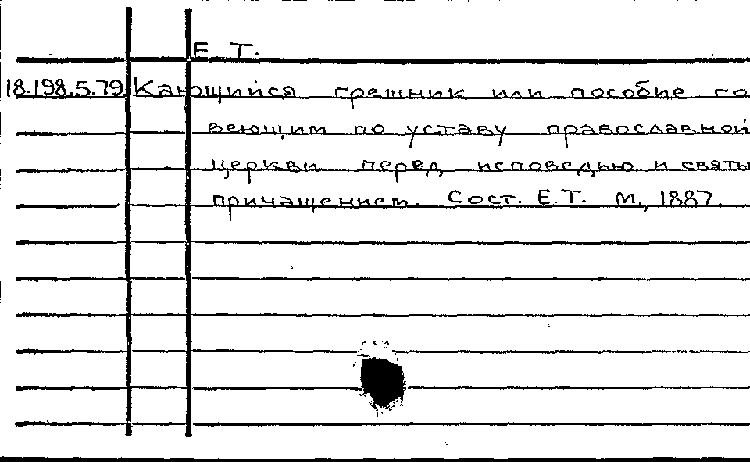 Е. Т.
18.198.5.79 Кающийся грешник или пособие го
веющим по уставу православной
церкви перед исповедью и святы
причащением. Сост. Е.Т. М., 1887.